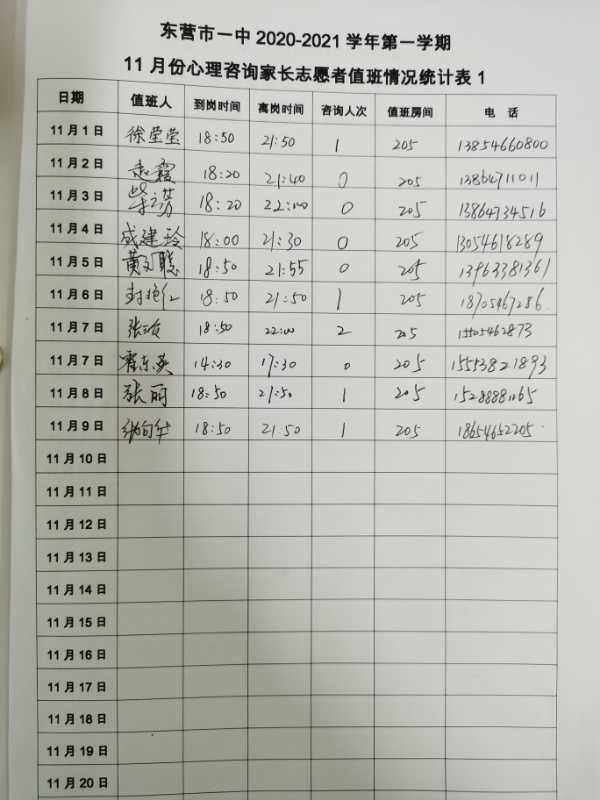 东营市一中 2020-2021 学年第一学期
11 月份心理咨询家长志愿者值班情况统计表 1
日期 值班人 到岗时间 离岗时间 咨询人次 值班房间 电 话
11 月 1 日 徐莹莹 18:50 21:50 1 205 13854660800
11 月 2 日 赵霞 18:20 21:40 0 205 13864711011
11 月 3 日 18:20 22:00 0 205 13864734516
11 月 4 日 成建玲 18:00 21:30 0 205 13054618289
11 月 5 日 18:50 21:55 0 205 13963381361
11 月 6 日 18:50 21:50 1 205 18705467286
11 月 7 日 18:50 22:00 2 205 15505462873
11 月 7 日 霍东英 14:30 17:30 0 205 15553821893
11 月 8 日 张丽 18:50 21:50 1 205
11 月 9 日 18:50 21:50 1 205 18654652205
11 月 10 日
11 月 11 日
11 月 12 日
11 月 13 日
11 月 14 日
11 月 15 日
11 月 16 日
11 月 17 日
11 月 18 日
11 月 19 日
11 月 20 日